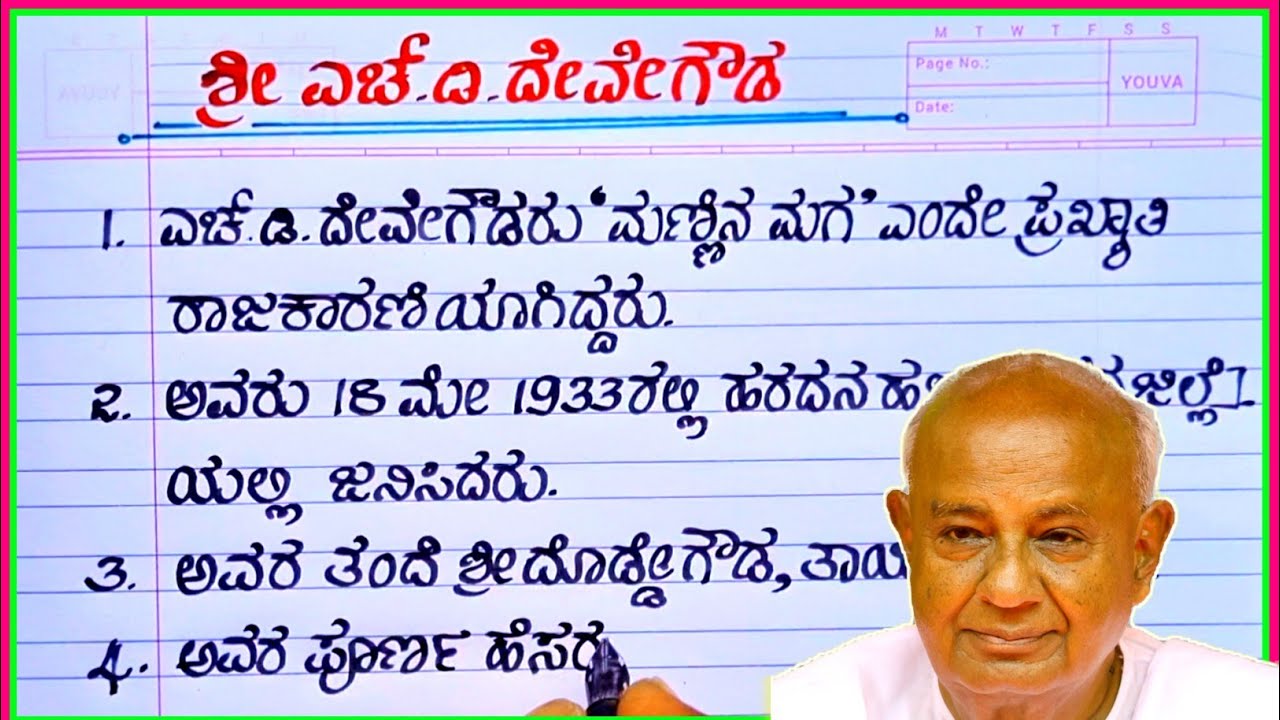 ಶ್ರೀ ಎಚ್.ಡಿ.ದೇವೇಗೌಡ
M T W T F S S
Page No.:
YOUVA
Date:
1. ಎಚ್.ಡಿ.ದೇವೇಗೌಡರು ‘ಮಣ್ಣಿನ ಮಗ’ ಎಂದೇ ಪ್ರಖ್ಯಾತಿ
ರಾಜಕಾರಣಿಯಾಗಿದ್ದರು.
2. ಅವರು 18 ಮೇ 1933ರಲ್ಲಿ ಹರದನ ಜಿಲ್ಲೆ
ಯಲ್ಲಿ ಜನಿಸಿದರು.
3. ಅವರ ತಂದೆ ಶ್ರೀದೊಡ್ಡೇಗೌಡ,
4. ಅವರ ಪೂರ್ಣ ಹೆಸರ